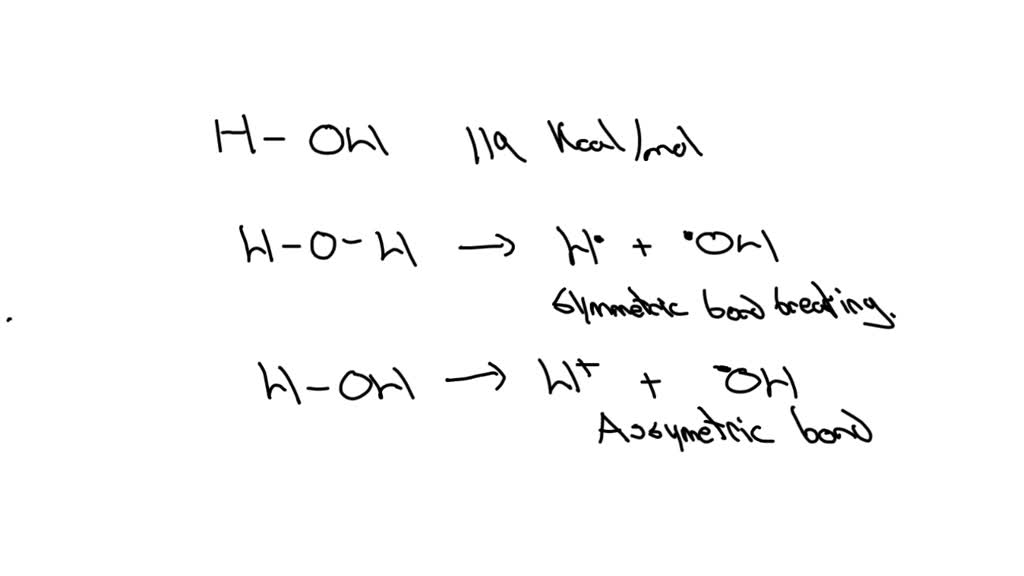 H - OH 119 Kcal/mol
H - O - H → H• + •OH
Symmetric bond breaking.
H - OH → H+ + -OH
Assymetric bond